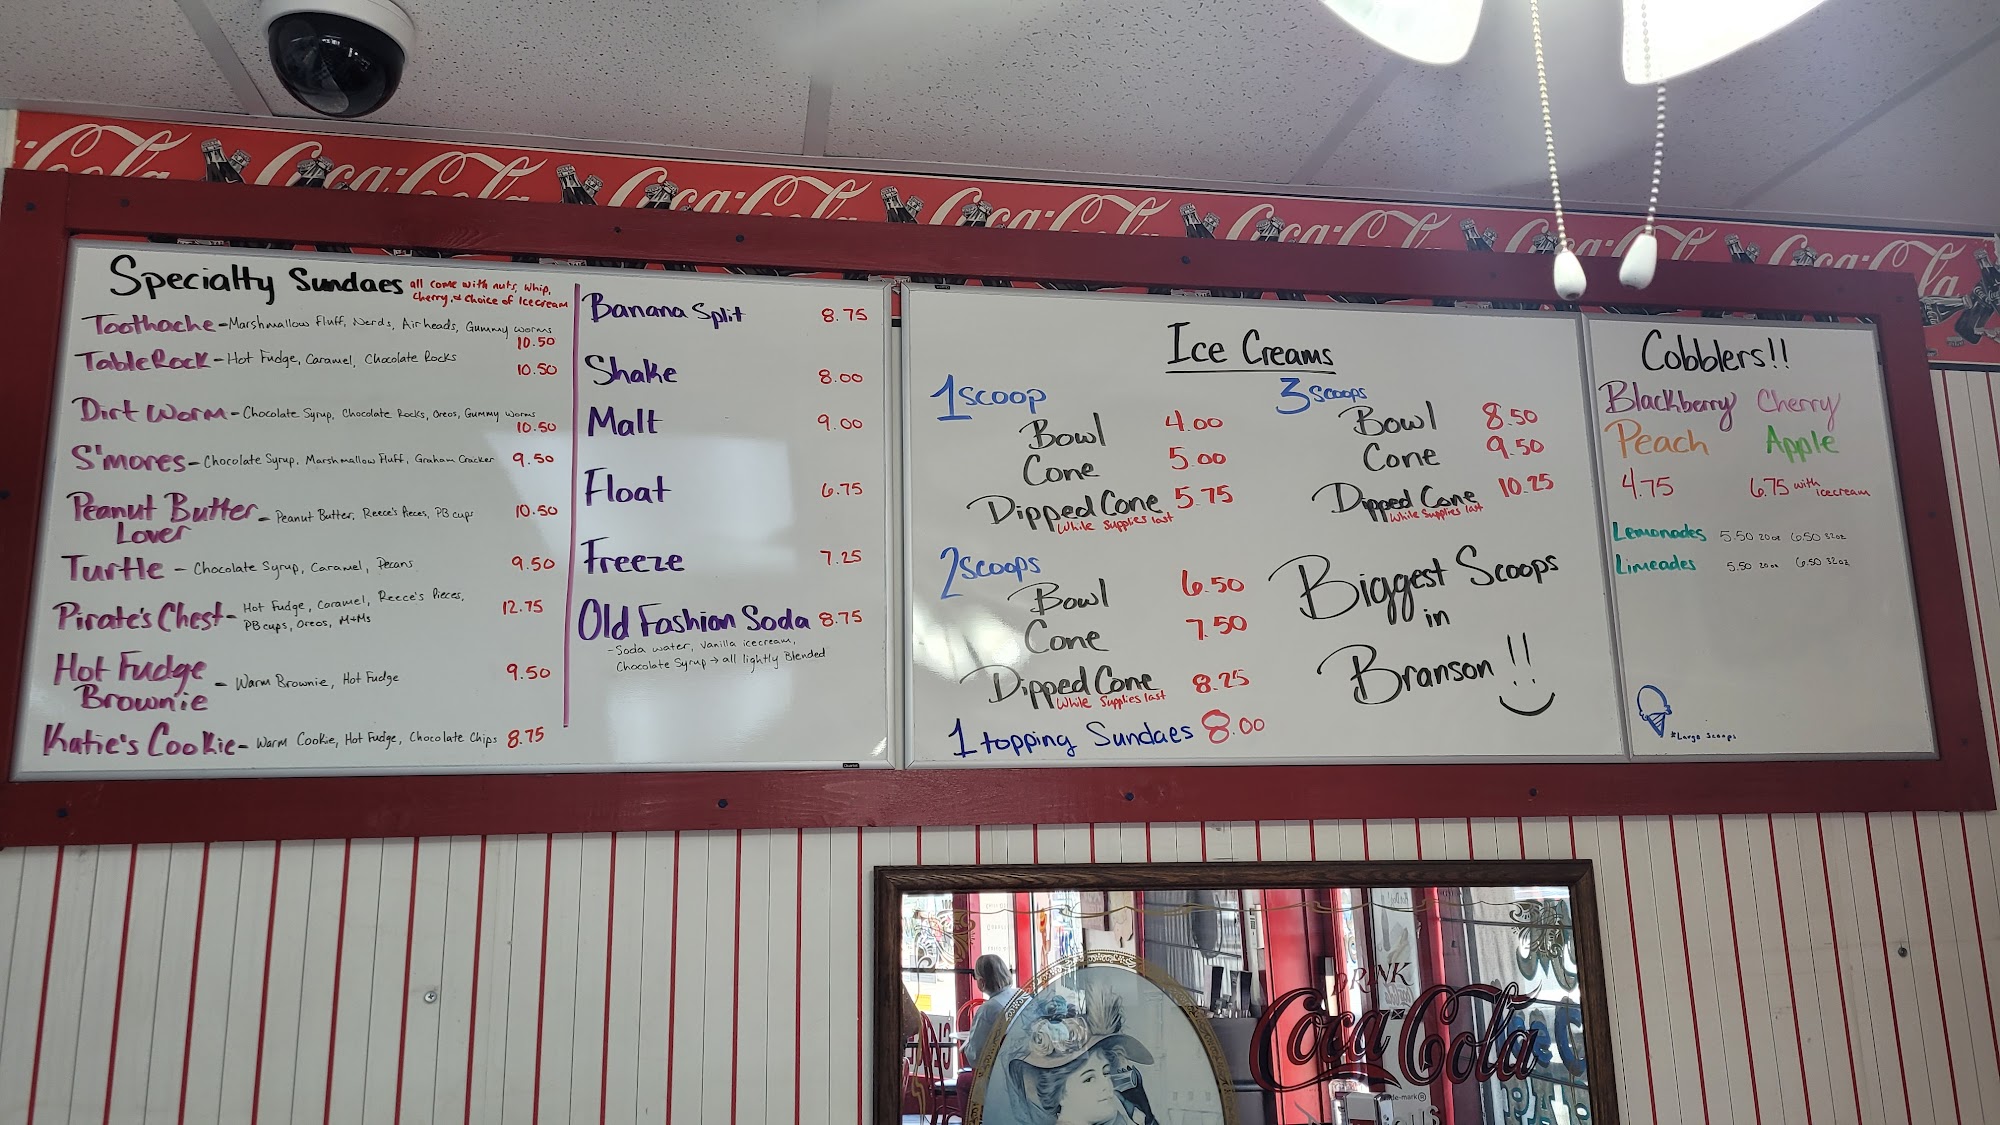 Coca-Cola Coca-Cola Coca-Cola Coca-Cola Coca-Cola Coca-Cola
Specialty Sundaes all come with nuts, whip,
cherry, & choice of Icecream
Toothache - Marshmallow Fluff, Nerds, Airheads, Gummy worms
10.50
Table Rock - Hot Fudge, Caramel, Chocolate Rocks
10.50
Dirt Worm - Chocolate Syrup, Chocolate Rocks, Oreos, Gummy worms
10.50
S'mores - Chocolate Syrup, Marshmallow Fluff, Graham Cracker 9.50
Peanut Butter Lover - Peanut Butter, Reece's Pieces, PB cups 10.50
Turtle - Chocolate Syrup, Caramel, Pecans 9.50
Pirate's Chest - Hot Fudge, Caramel, Reece's Pieces, 12.75
PB cups, Oreos, M+Ms
Hot Fudge
Brownie - Warm Brownie, Hot Fudge 9.50
Katie's Cookie - Warm Cookie, Hot Fudge, Chocolate Chips 8.75
Banana Split 8.75
Shake 8.00
Malt 9.00
Float 6.75
Freeze 7.25
Old Fashion Soda 8.75
- Soda water, Vanilla icecream,
Chocolate Syrup → all lightly Blended
Ice Creams
1 scoop
Bowl 4.00
Cone 5.00
Dipped Cone 5.75
While supplies last
2 scoops
Bowl 6.50
Cone 7.50
Dipped Cone 8.25
While supplies last
1 topping Sundaes 8.00
3 scoops
Bowl 8.50
Cone 9.50
Dipped Cone 10.25
While supplies last
Biggest Scoops
in
Branson!!
Cobblers!!
Blackberry Cherry
Peach Apple
4.75 6.75 with icecream
Lemonades 5.50 20oz 6.50 32oz
Limeades 5.50 20oz 6.50 32oz
*Large Scoops
DRINK
Coca-Cola